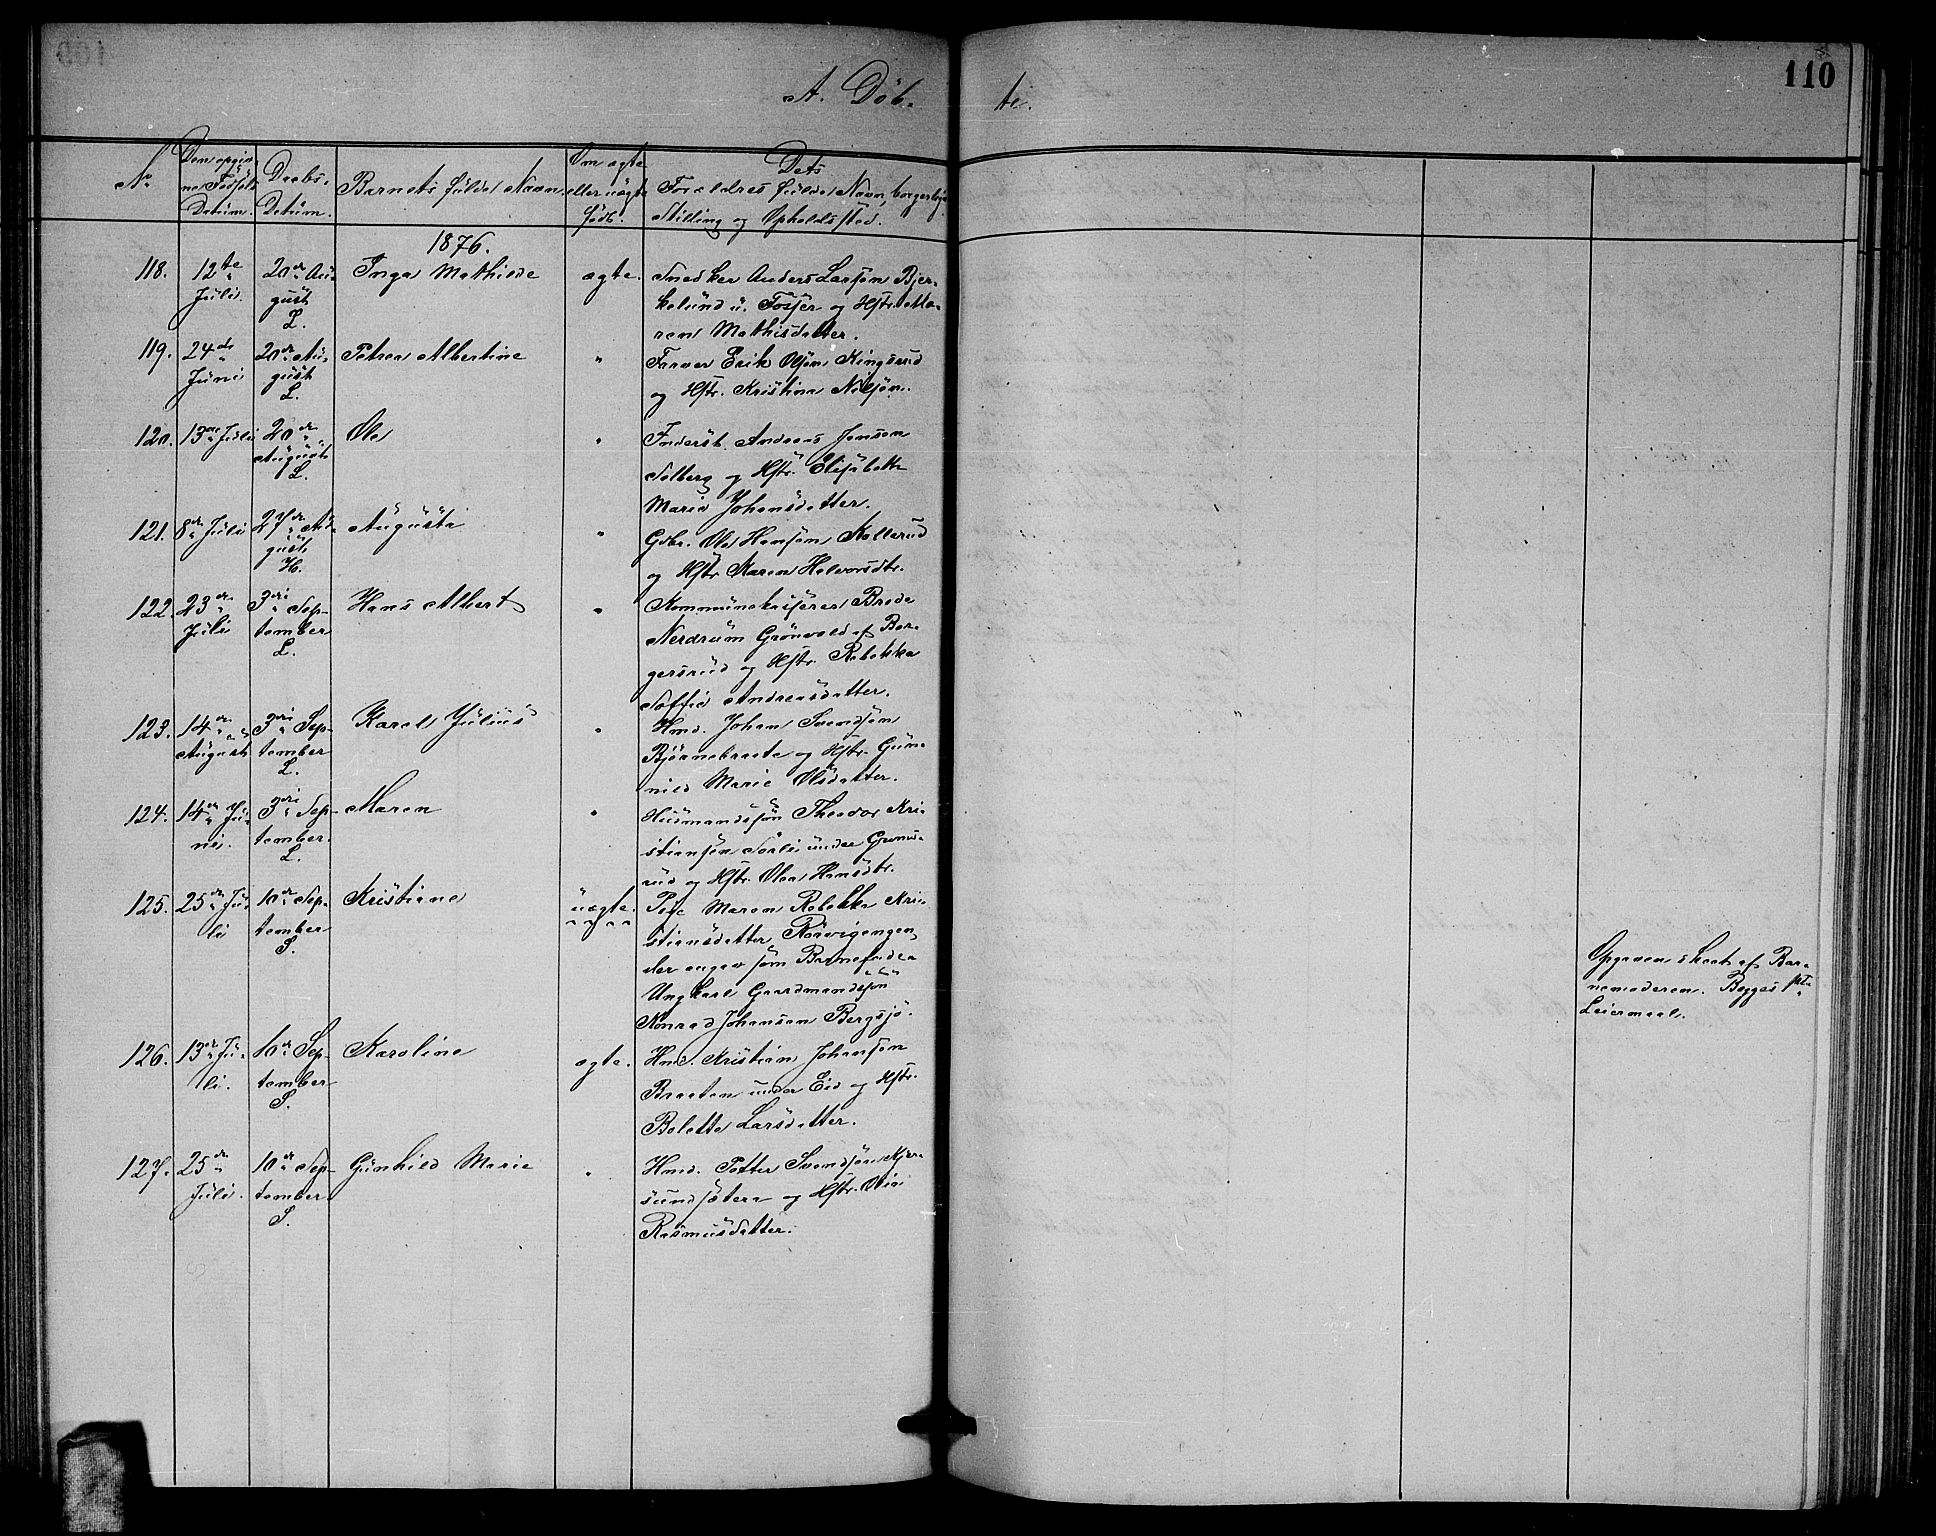 110
A. Döb-
te.
No
Den opgiv-
ne Födsels
Datum.
Daabs-
Datum.
Barnets fulde Navn.
Om ægte
eller uægte
født.
Dets
Forældres fulde Navn, borgerlige
Stilling og Opholdssted.
1876.
118.
12te
Juli.
20de Au-
gust
L.
Inga Mathilde
ægte.
Snedker Anders Larsen Bjer-
kelund u. Fosser og Hstr. Ma-
ren Mathisdatter.
119.
24de
Juni
20de Au-
gust
L.
Petrea Albertine
"
Farver Erik Olsen Ringsrud
og Hstr. Kristina Nilsen.
120.
13de Juli
20de
August
L.
Ole
"
Inderst Andreas Jensen
Solberg og Hstr. Elisabeth
Maria Johansdatter.
121.
8de Juli
27de Au-
gust
H.
Augusta
"
Gdbr. Ole Hansen Kollerud
og Hstr. Karen Halvorsdtr.
122.
23de
Juli
3die Sep-
tember
L.
Hans Albert
"
Kommunekasserer Brede
Nerdrum Grönvold af Bor-
gersrud og Hstr. Rebekka
Soffie Andreasdatter.
123.
14de
August
3die Sep-
tember
L.
Karel Julius
"
Hmd. Johan Svendsen
Bjørnebraate og Hstr. Gun-
nild Marie Olsdatter.
124.
14de Ju-
ni.
3die Sep-
tember.
L.
Maren
"
Husmandssøn Theodor Kri-
stiansen Sørli under Grims-
rud og Hstr. Olea Hansdtr.
125.
25de Ju-
li
10de Sep-
tember
S.
Kristiane
uægte.
Pige Maren Rebekka Kri-
stiansdatter Rørvigengen,
der angav som Barnefader
Ungkarl Gaardmandssøn
Konrad Johansen Bergsjø.
Opgaven skeet af Bar-
nemoderen. Begges 1ste
Leiermaal.
126.
13de Ju-
li.
10de Sep-
tember
S.
Karoline
ægte.
Hmd. Kristian Johansen
Braaten under Eid og Hstr.
Bolette Larsdatter.
127.
25de
Juli.
10de Sep-
tember.
S.
Gunhild Marie
"
Hmd. Petter Svendsen Kjer-
sundsætera og Hstr. Olia
Rasmusdatter.